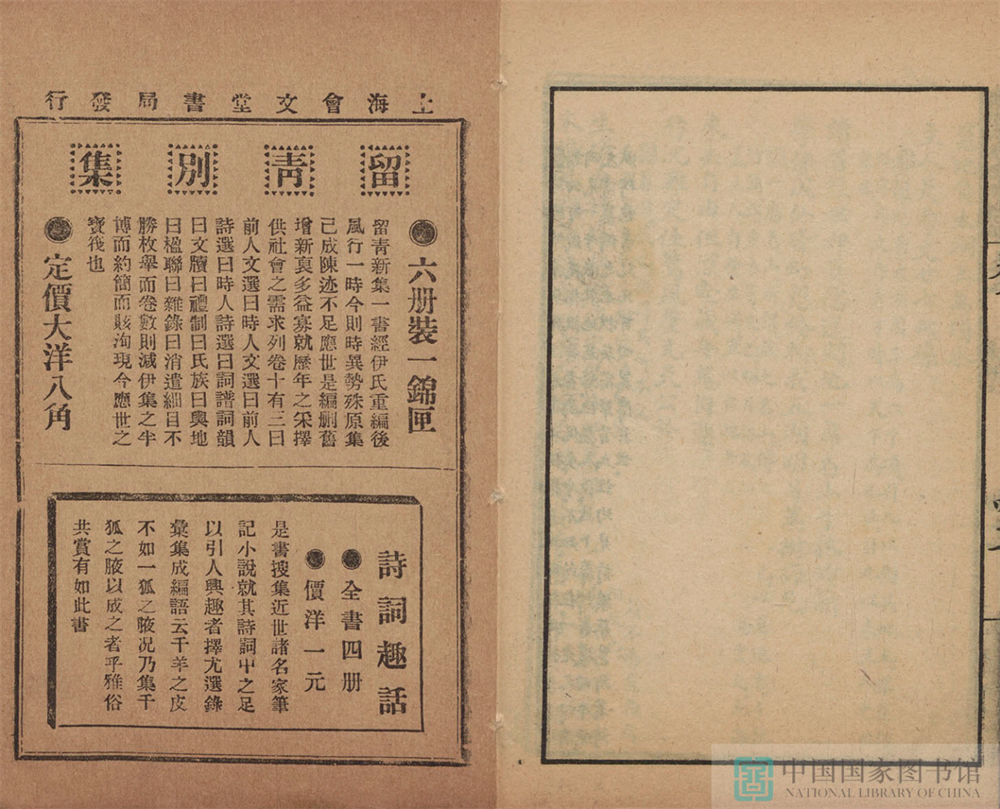 上海會文堂書局發行
留青別集
●六册裝一錦匣
留青新集一書經伊氏重編後
風行一時今則時異勢殊原集
已成陳迹不足應世是編刪舊
增新裒多益寡就歷年之采擇
供社會之需求列卷十有三曰
前人文選曰時人文選曰前人
詩選曰時人詩選曰詞譜詞韻
曰文牘曰禮制曰氏族曰輿地
曰楹聯曰雜錄曰消遣細目不
勝枚舉而卷數則減伊集之半
博而約簡而賅洵現今應世之
寶筏也
●定價大洋八角
詩詞趣話
●全書四册
●價洋一元
是書搜集近世諸名家筆
記小說就其詩詞中之足
以引人興趣者擇尤選錄
彙集成編語云千羊之皮
不如一狐之腋况乃集千
狐之腋以成之者乎雅俗
共賞有如此書
中国国家图书馆
NATIONAL LIBRARY OF CHINA